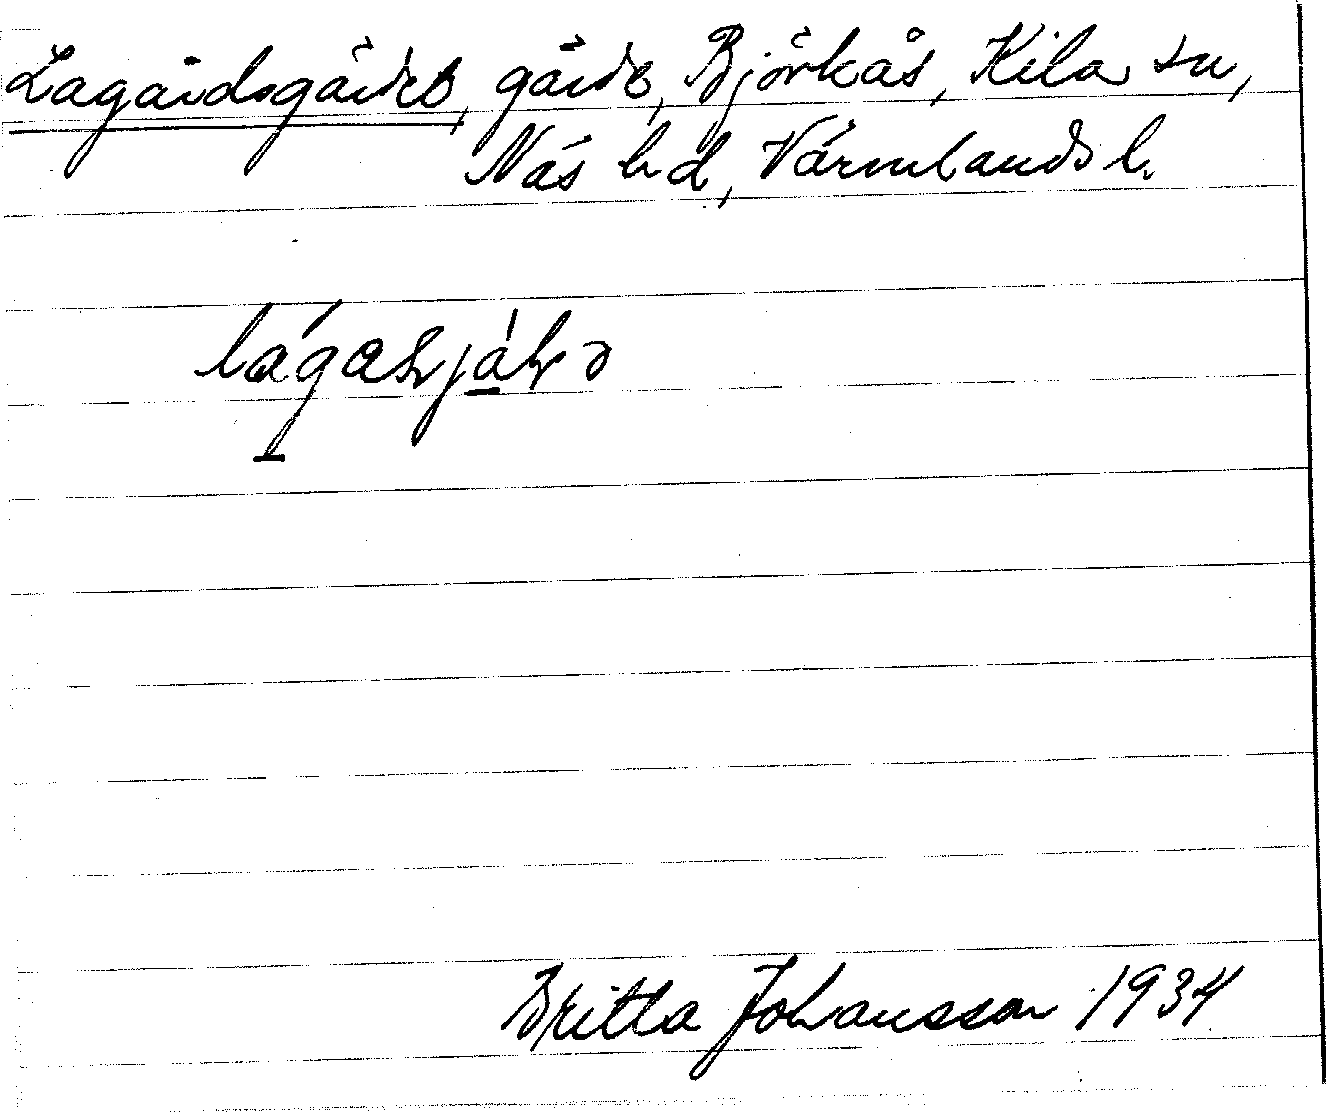 Lagårdsgärdet, gärde, Björkås, Kila sn,
Näs hd, Värmlands l.
Britta Johansson 1934